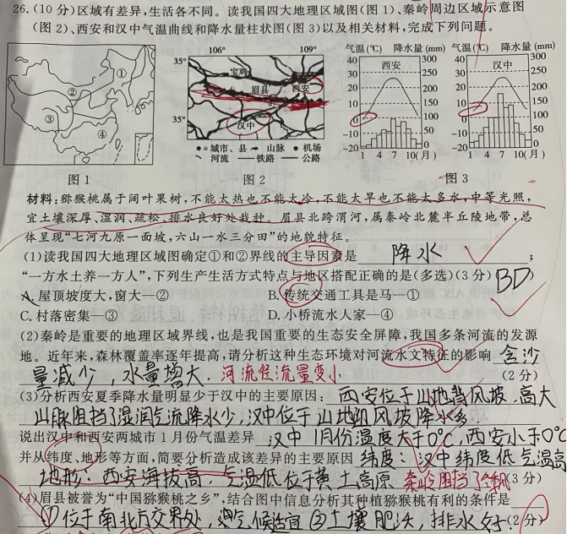 26.(10分)区域有差异,生活各不同。读我国四大地理区域图(图1)、秦岭周边区域示意图
(图2)、西安和汉中气温曲线和降水量柱状图(图3)以及相关材料,完成下列问题。
① ② ③ ④
106° 109°
35° 35°
宝鸡 眉县 西安 汉中
城市、县 山脉 机场
河流 铁路 公路
气温(℃) 降水量(mm) 气温(℃) 降水量(mm)
西安 汉中
40 30 20 10 0 -10 -20
300 250 200 150 100 50 0
1 4 7 10(月) 1 4 7 10(月)
图1 图2 图3
材料:猕猴桃属于阔叶果树,不能太热也不能太冷,不能太旱也不能太多水,中等光照,
宜土壤深厚、湿润、疏松、排水良好处栽种。眉县北跨渭河,属秦岭北麓半丘陵地带,总
体呈现“七河九原一面坡,六山一水三分田”的地貌特征。
(1)读我国四大地理区域图确定①和②界线的主导因素是 降水 ;
“一方水土养一方人”,下列生产生活方式特点与地区搭配正确的是(多选)(3分) BD
A.屋顶坡度大,窗大—② B.传统交通工具是马—①
C.村落密集—③ D.小桥流水人家—④
(2)秦岭是重要的地理区域界线,也是我国重要的生态安全屏障,我国多条河流的发源
地。近年来,森林覆盖率逐年提高,请分析这种生态环境对河流水文特征的影响 含沙
量减少,水量增大. 河流径流量变小 (2分)
(3)分析西安夏季降水量明显少于汉中的主要原因: 西安位于山地背风坡.高大
山脉阻挡了湿润气流降水少,汉中位于山地迎风坡降水多.
说出汉中和西安两城市1月份气温差异 汉中1月份温度大于0℃,西安小于0℃
并从纬度、地形等方面,简要分析造成该差异的主要原因 纬度:汉中纬度低气温高
地形:西安海拔高.气温低位于黄土高原 秦岭阻挡了冷 (3分)
(4)眉县被誉为“中国猕猴桃之乡”,结合图中信息分析其种植猕猴桃有利的条件是
①位于南北方交界处,气候适宜 ②土壤肥沃,排水好 (2分)